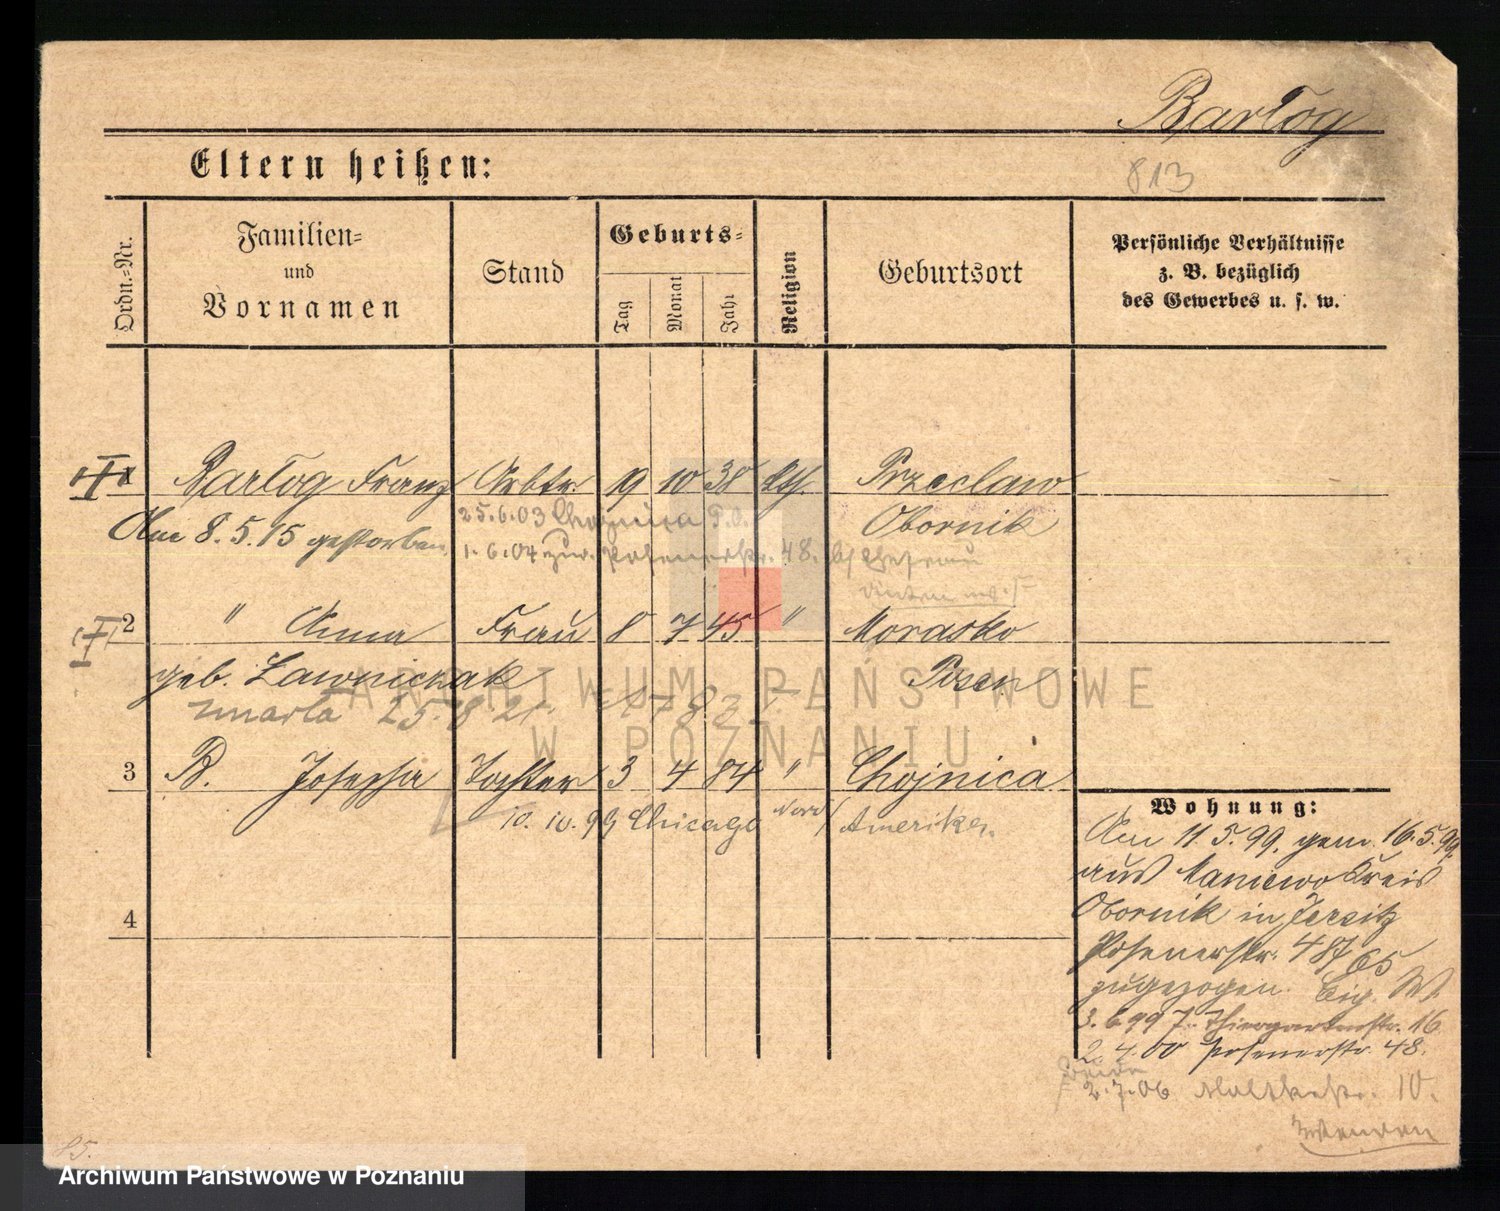 Bartog
Eltern heißen:
813
Ordn.-Nr.
Familien-
und
Vornamen
Stand
Geburts-
Tag
Monat
Jahr
Religion
Geburtsort
Persönliche Verhältnisse
z. B. bezüglich
des Gewerbes u. s. w.
1 Bartog Franz Arbtr. 19 10 38 kth. Przeclaw
Am 8.5.15 gestorben Obornik
25.6.03 Chojnica P.O.
1.6.04 zur. Posenerstr. 48.
2 " Anna Frau 8 7 45 " Morasko
geb. Lawniczak Posen
zmarła 25.8 21.
3 B. Josepha Tochter 3 4 84 " Chojnica
10.10.99 Chicago Nord Amerika.
4
Wohnung:
Am 11.5.99. gem. 16.5.99.
aus Maniewo Kreis
Obornik in Jersitz
Posenerstr. 48 65
zugezogen.
3.6.99 J. Thiergartenstr. 16
2.4.00 Posenerstr. 48.
2.7.06 Moltkestr. 10.
ARCHIWUM PAŃSTWOWE
W POZNANIU
85.
Archiwum Państwowe w Poznaniu